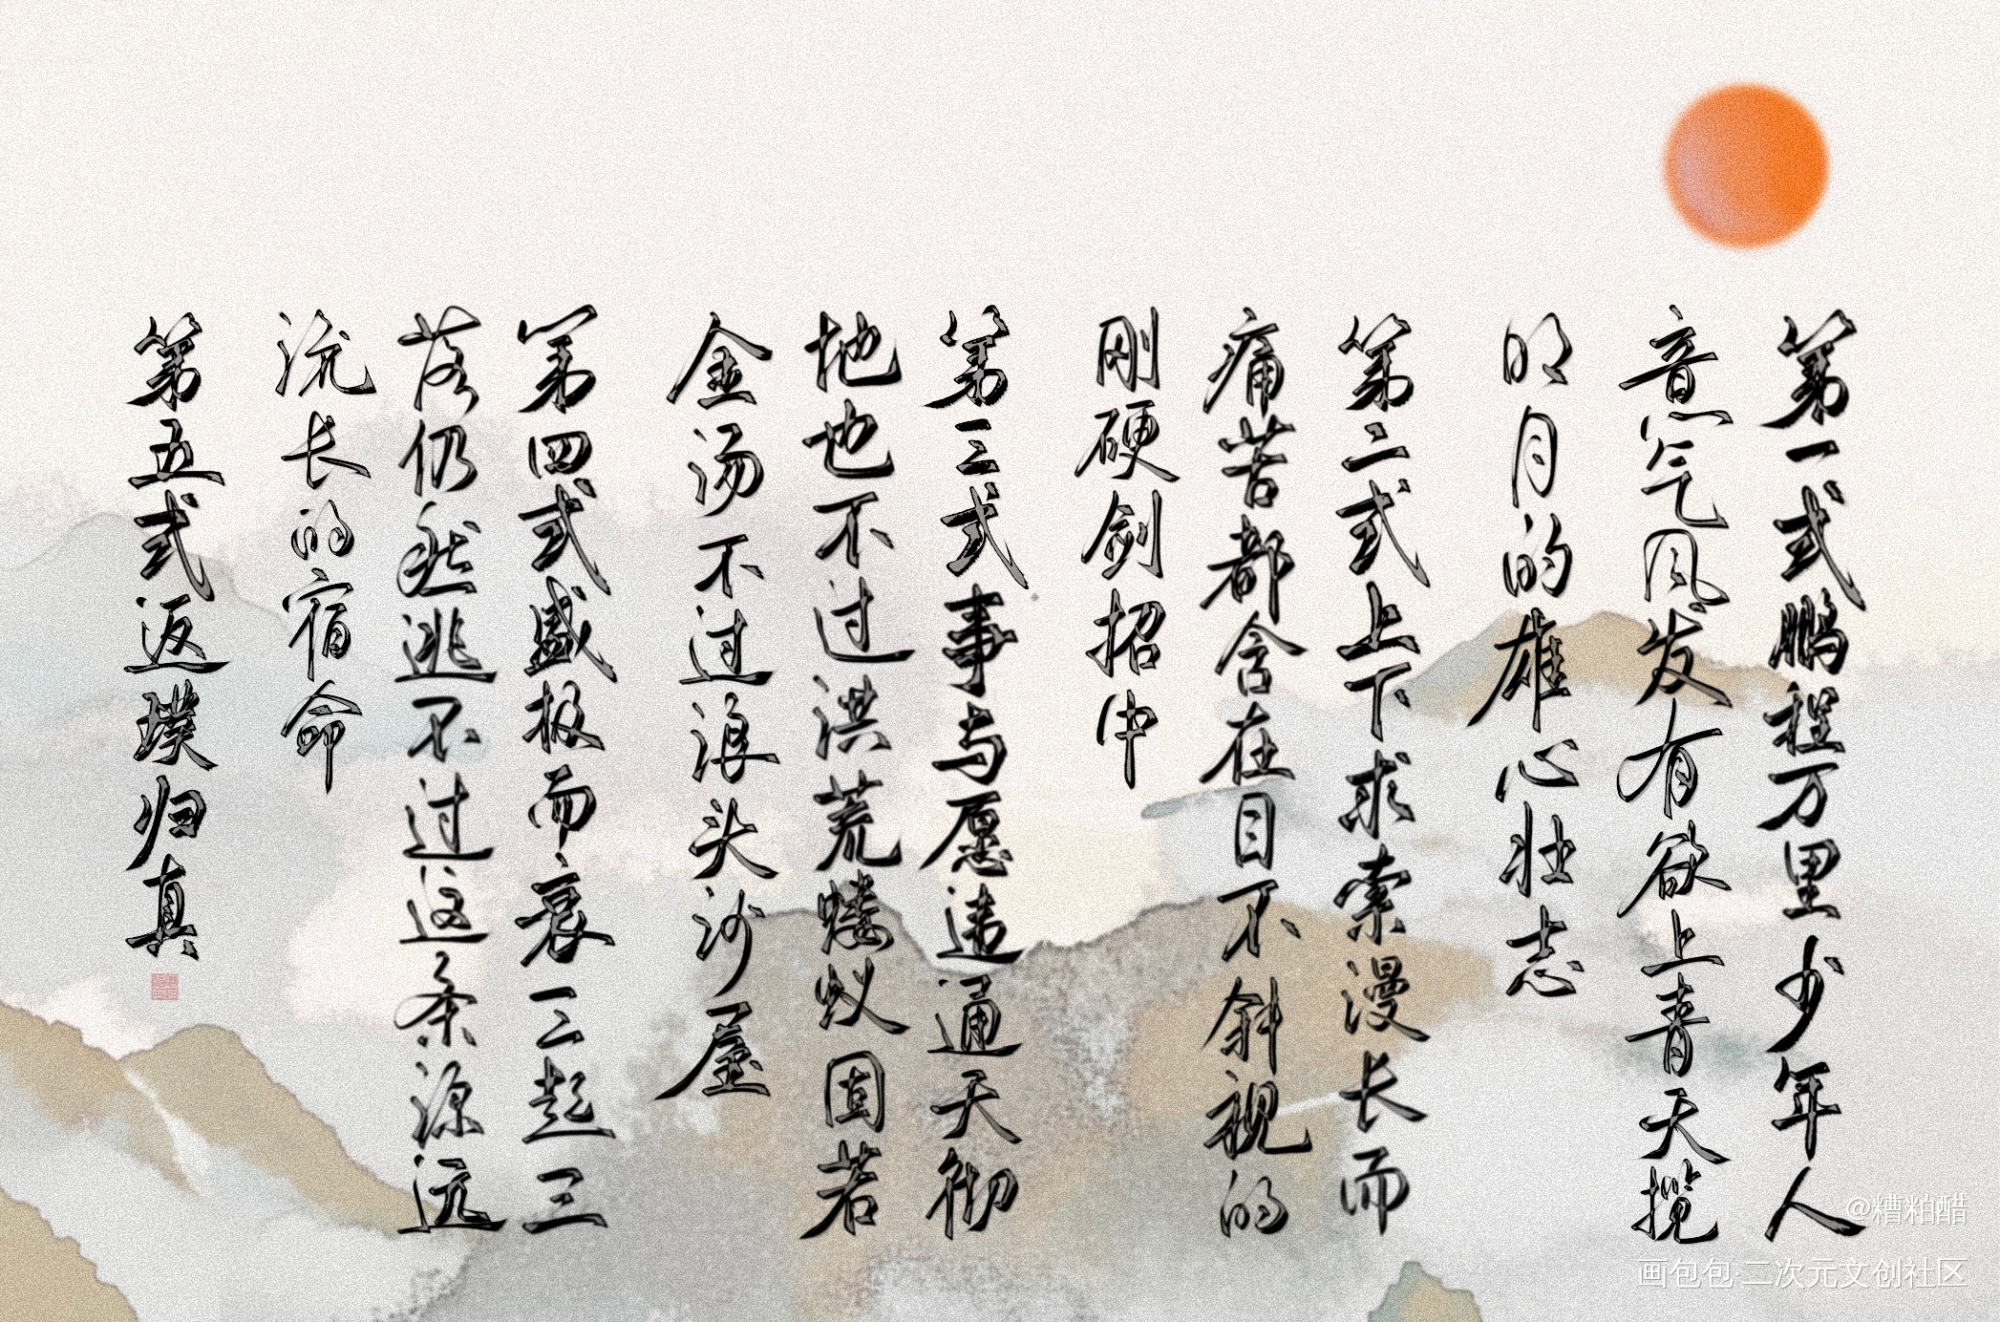 第一式鹏程万里少年人
意气风发有欲上青天揽
明月的雄心壮志
第二式上下求索漫长而
痛苦都含在目不斜视的
刚硬剑招中
第三式事与愿违通天彻
地也不过洪荒蝼蚁固若
金汤不过浪头沙屋
第四式盛极而衰三起三
落仍然逃不过这条源远
流长的宿命
第五式返璞归真
@糟粕醋
画包包·二次元文创社区